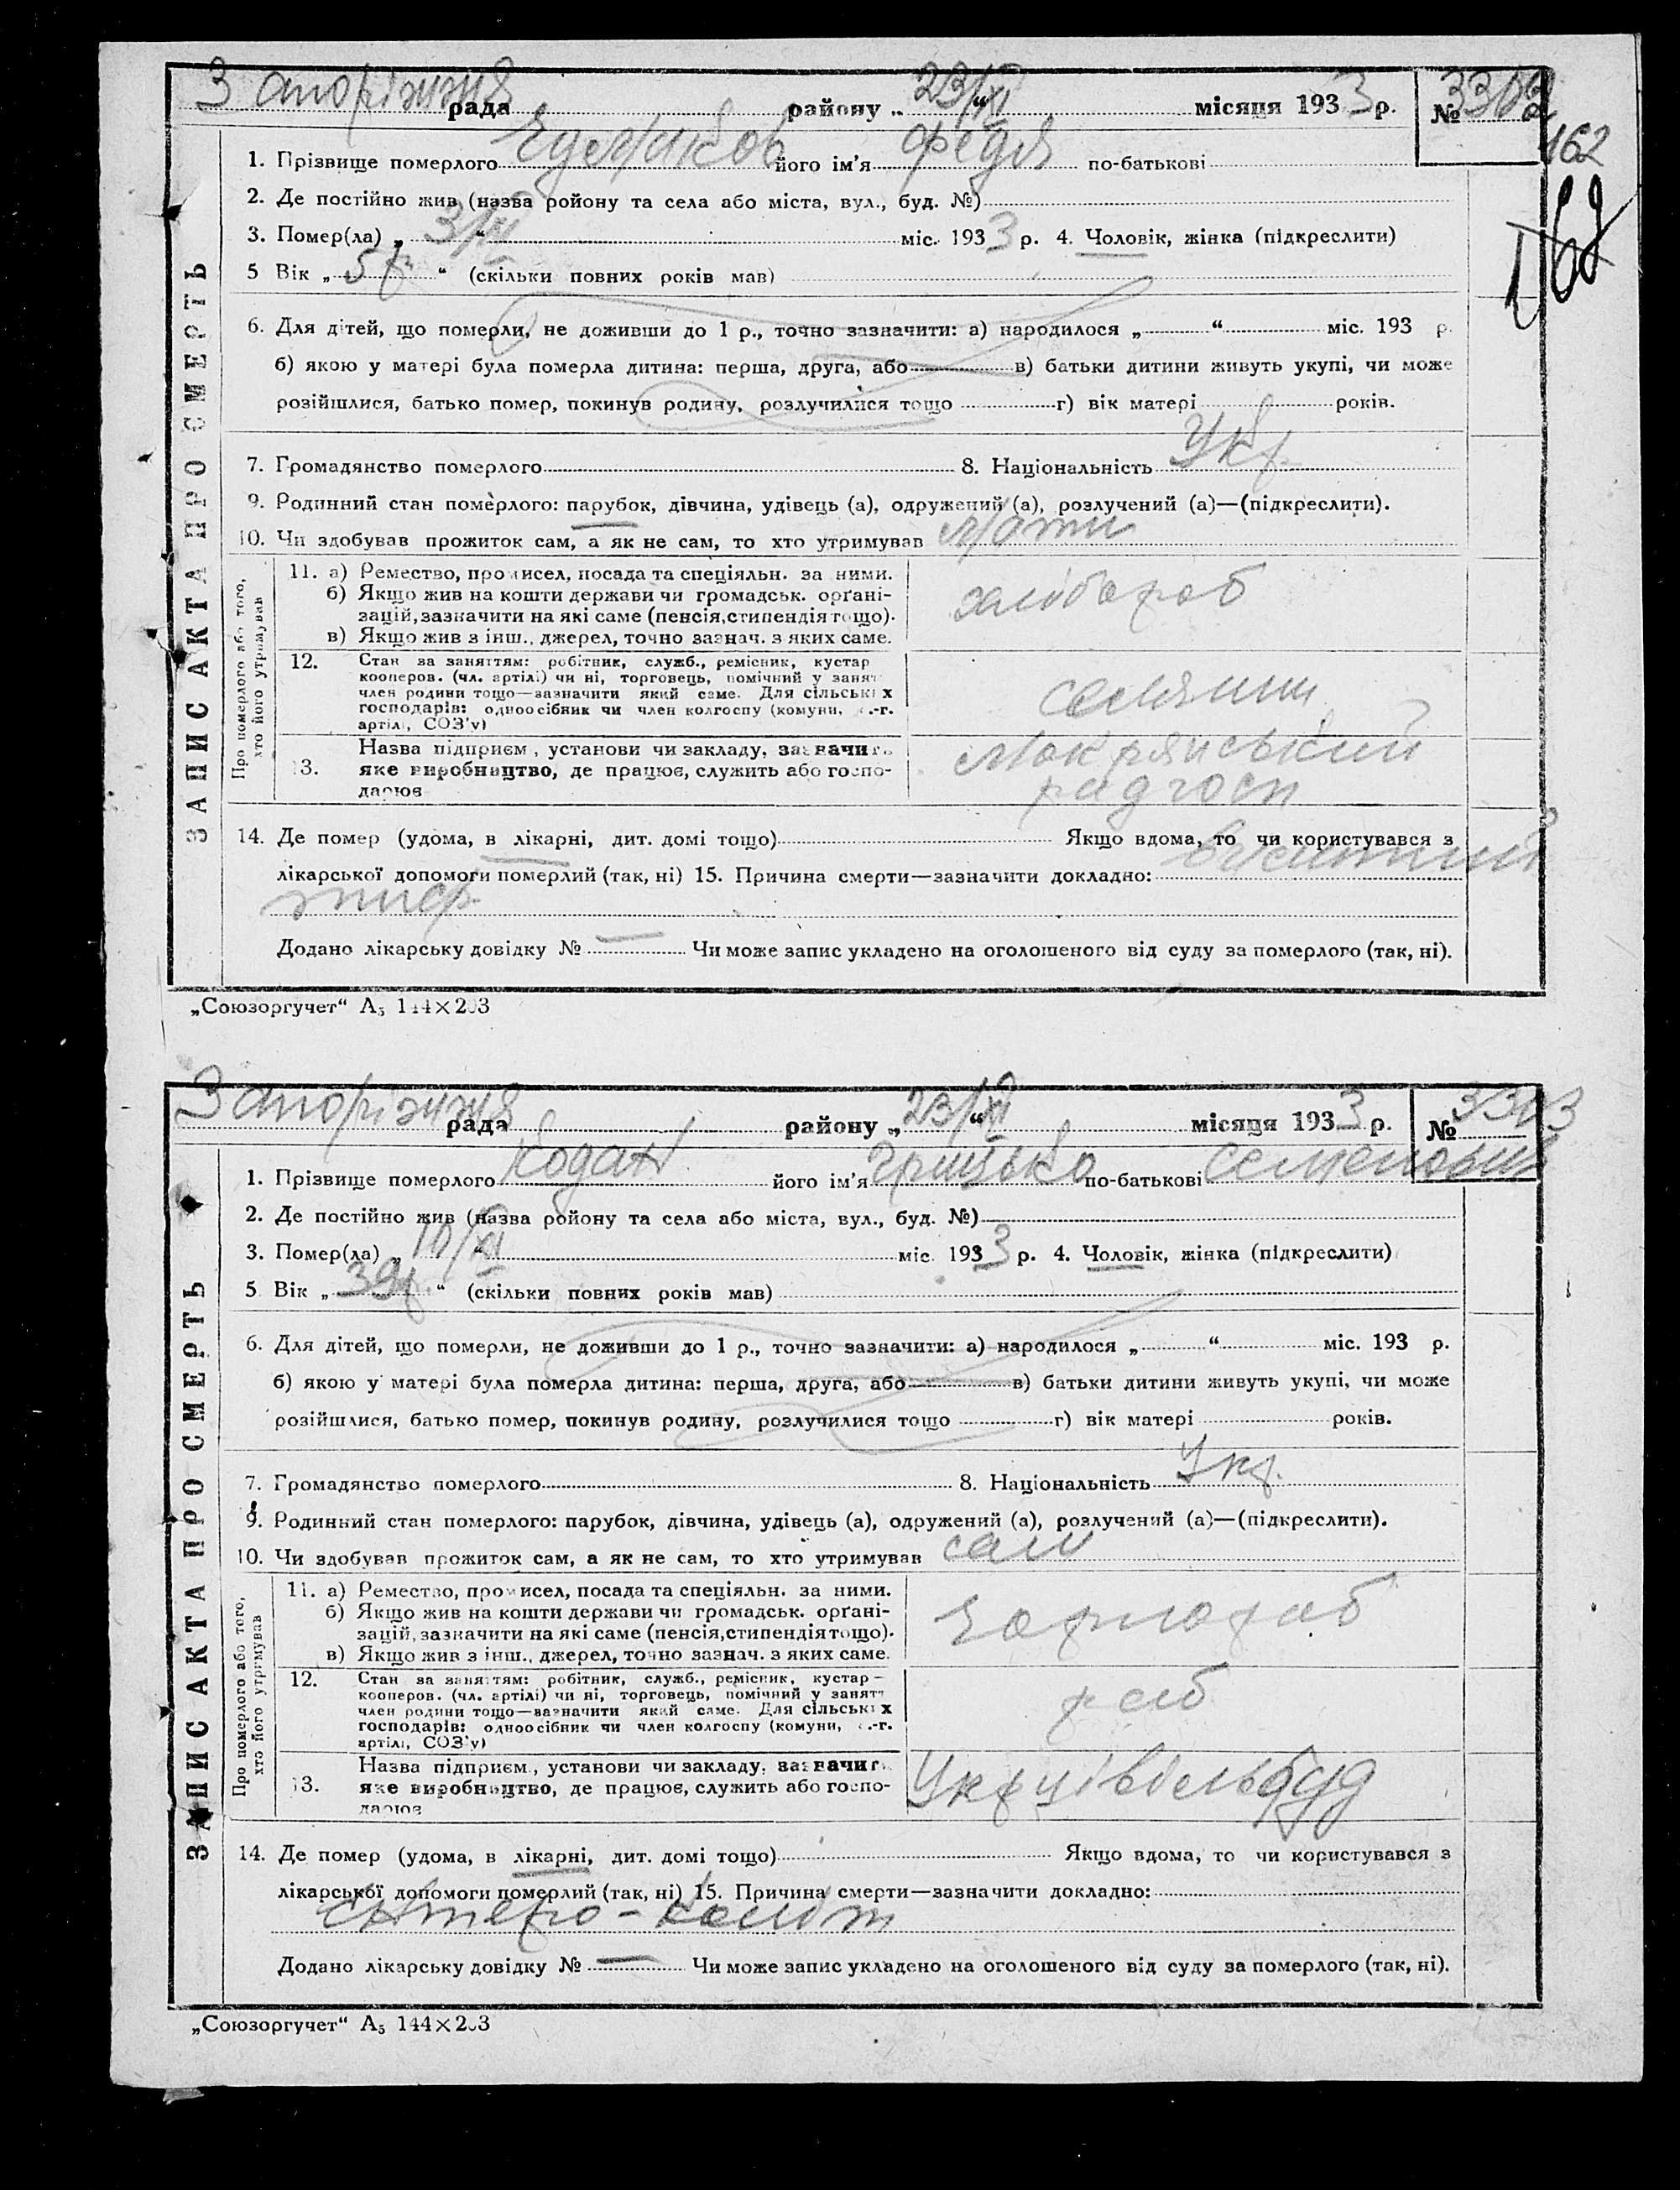 Запоріжжя рада району „23/XI“ місяця 1933 р. № 3302
162
162
ЗАПИС АКТА ПРО СМЕРТЬ
1. Прізвище померлого його ім'я Федя по-батькові
2. Де постійно жив (назва ройону та села або міста, вул., буд. №)
3. Помер(ла) „3/XI“ міс. 1933 р. 4. Чоловік, жінка (підкреслити)
5 Вік „5 р.“ (скільки повних років мав)
6. Для дітей, що померли, не доживши до 1 р., точно зазначити: а) народилося „ “ міс. 193 р.
б) якою у матері була померла дитина: перша, друга, або в) батьки дитини живуть укупі, чи може
розійшлися, батько помер, покинув родину, розлучилися тощо г) вік матері років.
7. Громадянство померлого 8. Національність Укр.
9. Родинний стан померлого: парубок, дівчина, удівець (а), одружений (а), розлучений (а)—(підкреслити).
10. Чи здобував прожиток сам, а як не сам, то хто утримував мати
Про померлого або того, хто його утримував
11. а) Ремество, промисел, посада та спеціяльн. за ними.
б) Якщо жив на кошти держави чи громадськ. орґані-
зацій, зазначити на які саме (пенсія, стипендія тощо).
в) Якщо жив з інш., джерел, точно зазнач. з яких саме.
хлібороб
12. Стан за заняттям: робітник, служб., ремісник, кустар
кооперов. (чл. артілі) чи ні, торговець, помічний у занят
член родини тощо—зазначити який саме. Для сільських
господарів: одноосібник чи член колгоспу (комуни, с.-г.
артілі, СОЗ'у)
селянин
13. Назва підприєм., установи чи закладу, зазначить
яке виробництво, де працює, служить або госпо-
дарює
Мокрянський
радгосп
14. Де помер (удома, в лікарні, дит. домі тощо) Якщо вдома, то чи користувався з
лікарської допомоги померлий (так, ні) 15. Причина смерти—зазначити докладно:
тиф.
Додано лікарську довідку № — Чи може запис укладено на оголошеного від суду за померлого (так, ні).
„Союзоргучет“ А5 144×203
Запоріжжя рада району „23/XI“ місяця 1933 р. № 3303
ЗАПИС АКТА ПРО СМЕРТЬ
1. Прізвище померлого Кодан його ім'я Грицько по-батькові Семенович
2. Де постійно жив (назва ройону та села або міста, вул., буд. №)
3. Помер(ла) „10/XI“ міс. 1933 р. 4. Чоловік, жінка (підкреслити)
5 Вік „39 р.“ (скільки повних років мав)
6. Для дітей, що померли, не доживши до 1 р., точно зазначити: а) народилося „ “ міс. 193 р.
б) якою у матері була померла дитина: перша, друга, або в) батьки дитини живуть укупі, чи може
розійшлися, батько помер, покинув родину, розлучилися тощо г) вік матері років.
7. Громадянство померлого 8. Національність Укр.
9. Родинний стан померлого: парубок, дівчина, удівець (а), одружений (а), розлучений (а)—(підкреслити).
10. Чи здобував прожиток сам, а як не сам, то хто утримував сам
Про померлого або того, хто його утримував
11. а) Ремество, промисел, посада та спеціяльн. за ними.
б) Якщо жив на кошти держави чи громадськ. орґані-
зацій, зазначити на які саме (пенсія, стипендія тощо).
в) Якщо жив з інш., джерел, точно зазнач. з яких саме.
чорнороб
12. Стан за заняттям: робітник, служб., ремісник, кустар —
кооперов. (чл. артілі) чи ні, торговець, помічний у занят
член родини тощо—зазначити який саме. Для сільських
господарів: одноосібник чи член колгоспу (комуни, с.-г.
артілі, СОЗ'у)
роб
13. Назва підприєм., установи чи закладу, зазначить
яке виробництво, де працює, служить або госпо-
дарює
Укрцівільбуд
14. Де помер (удома, в лікарні, дит. домі тощо) Якщо вдома, то чи користувався з
лікарської допомоги померлий (так, ні) 15. Причина смерти—зазначити докладно:
Ентеро-коліт
Додано лікарську довідку № — Чи може запис укладено на оголошеного від суду за померлого (так, ні).
„Союзоргучет“ А5 144×203